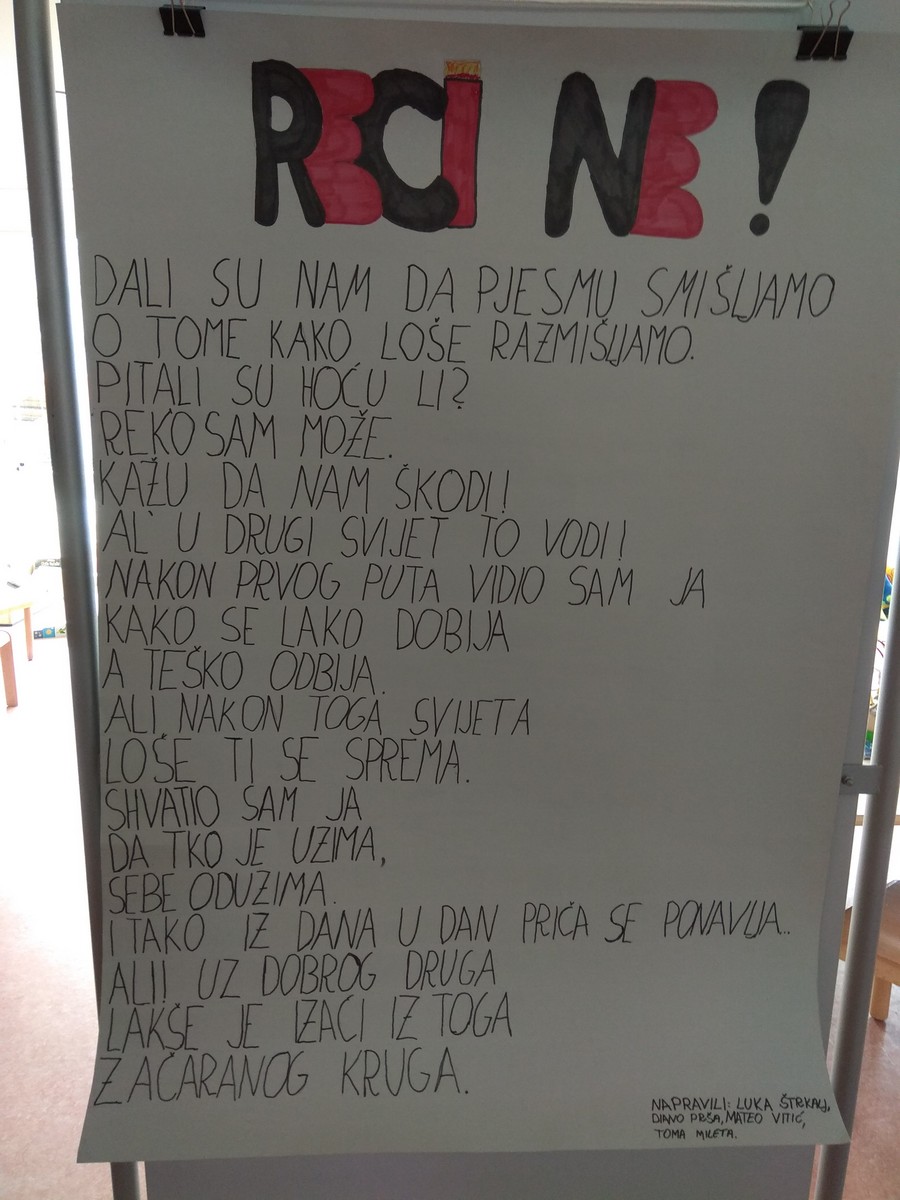 RECI NE!
DALI SU NAM DA PJESMU SMIŠLJAMO
O TOME KAKO LOŠE RAZMIŠLJAMO.
PITALI SU HOĆU LI?
REKO SAM MOŽE.
KAŽU DA NAM ŠKODI!
AL' U DRUGI SVIJET TO VODI!
NAKON PRVOG PUTA VIDIO SAM JA
KAKO SE LAKO DOBIJA
A TEŠKO ODBIJA.
ALI NAKON TOGA SVIJETA
LOŠE TI SE SPREMA.
SHVATIO SAM JA
DA TKO JE UZIMA,
SEBE ODUZIMA.
I TAKO IZ DANA U DAN PRIČA SE PONAVLJA..
ALI! UZ DOBROG DRUGA
LAKŠE JE IZAĆI IZ TOGA
ZAČARANOG KRUGA.
NAPRAVILI: LUKA ŠTRKALJ,
DIANO PRŠA, MATEO VITIĆ,
TOMA MILETA.